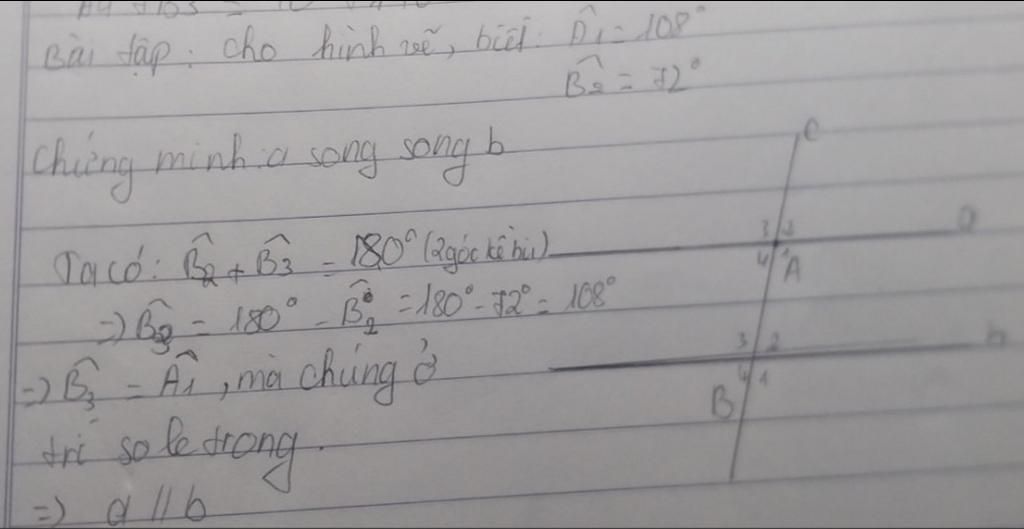 Bài tập: cho hình vẽ, biết: Â₁ = 108°
B̂₂ = 72°
Chứng minh: a song song b
Ta có: B̂₂ + B̂₃ = 180° (2 góc kề bù)
=> B̂₃ = 180° - B̂₂ = 180° - 72° = 108°
=> B̂₃ = Â₁, mà chúng ở
trí so le trong.
=> a // b
c
3 2 a
4 1 A
3 2 b
4 1
B